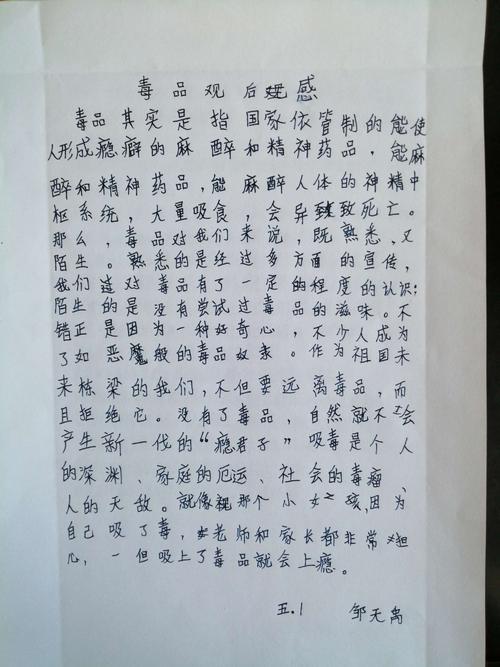 毒品观后感
毒品其实是指国家依管制的能使
人形成瘾癖的麻醉和精神药品，能麻
醉和精神药品，能麻醉人体的神精中
枢系统，大量吸食，会异致致死亡。
那么，毒品对我们来说，既熟悉，又
陌生。熟悉的是经过多方面的宣传，
我们这对毒品有了一定的程度的认识；
陌生的是没有尝试过毒品的滋味。不
错正是因为一种好奇心，不少人成为
了如恶魔般的毒品奴隶。作为祖国未
来栋梁的我们，不但要远离毒品，而
且拒绝它。没有了毒品，自然就不会
产生新一代的“瘾君子”吸毒是个人
的深渊、家庭的厄运、社会的毒瘤、
人的天敌。就像视那个小女孩，因为
自己吸了毒，老师和家长都非常担
心，一但吸上了毒品就会上瘾。
五.1 邹天禹